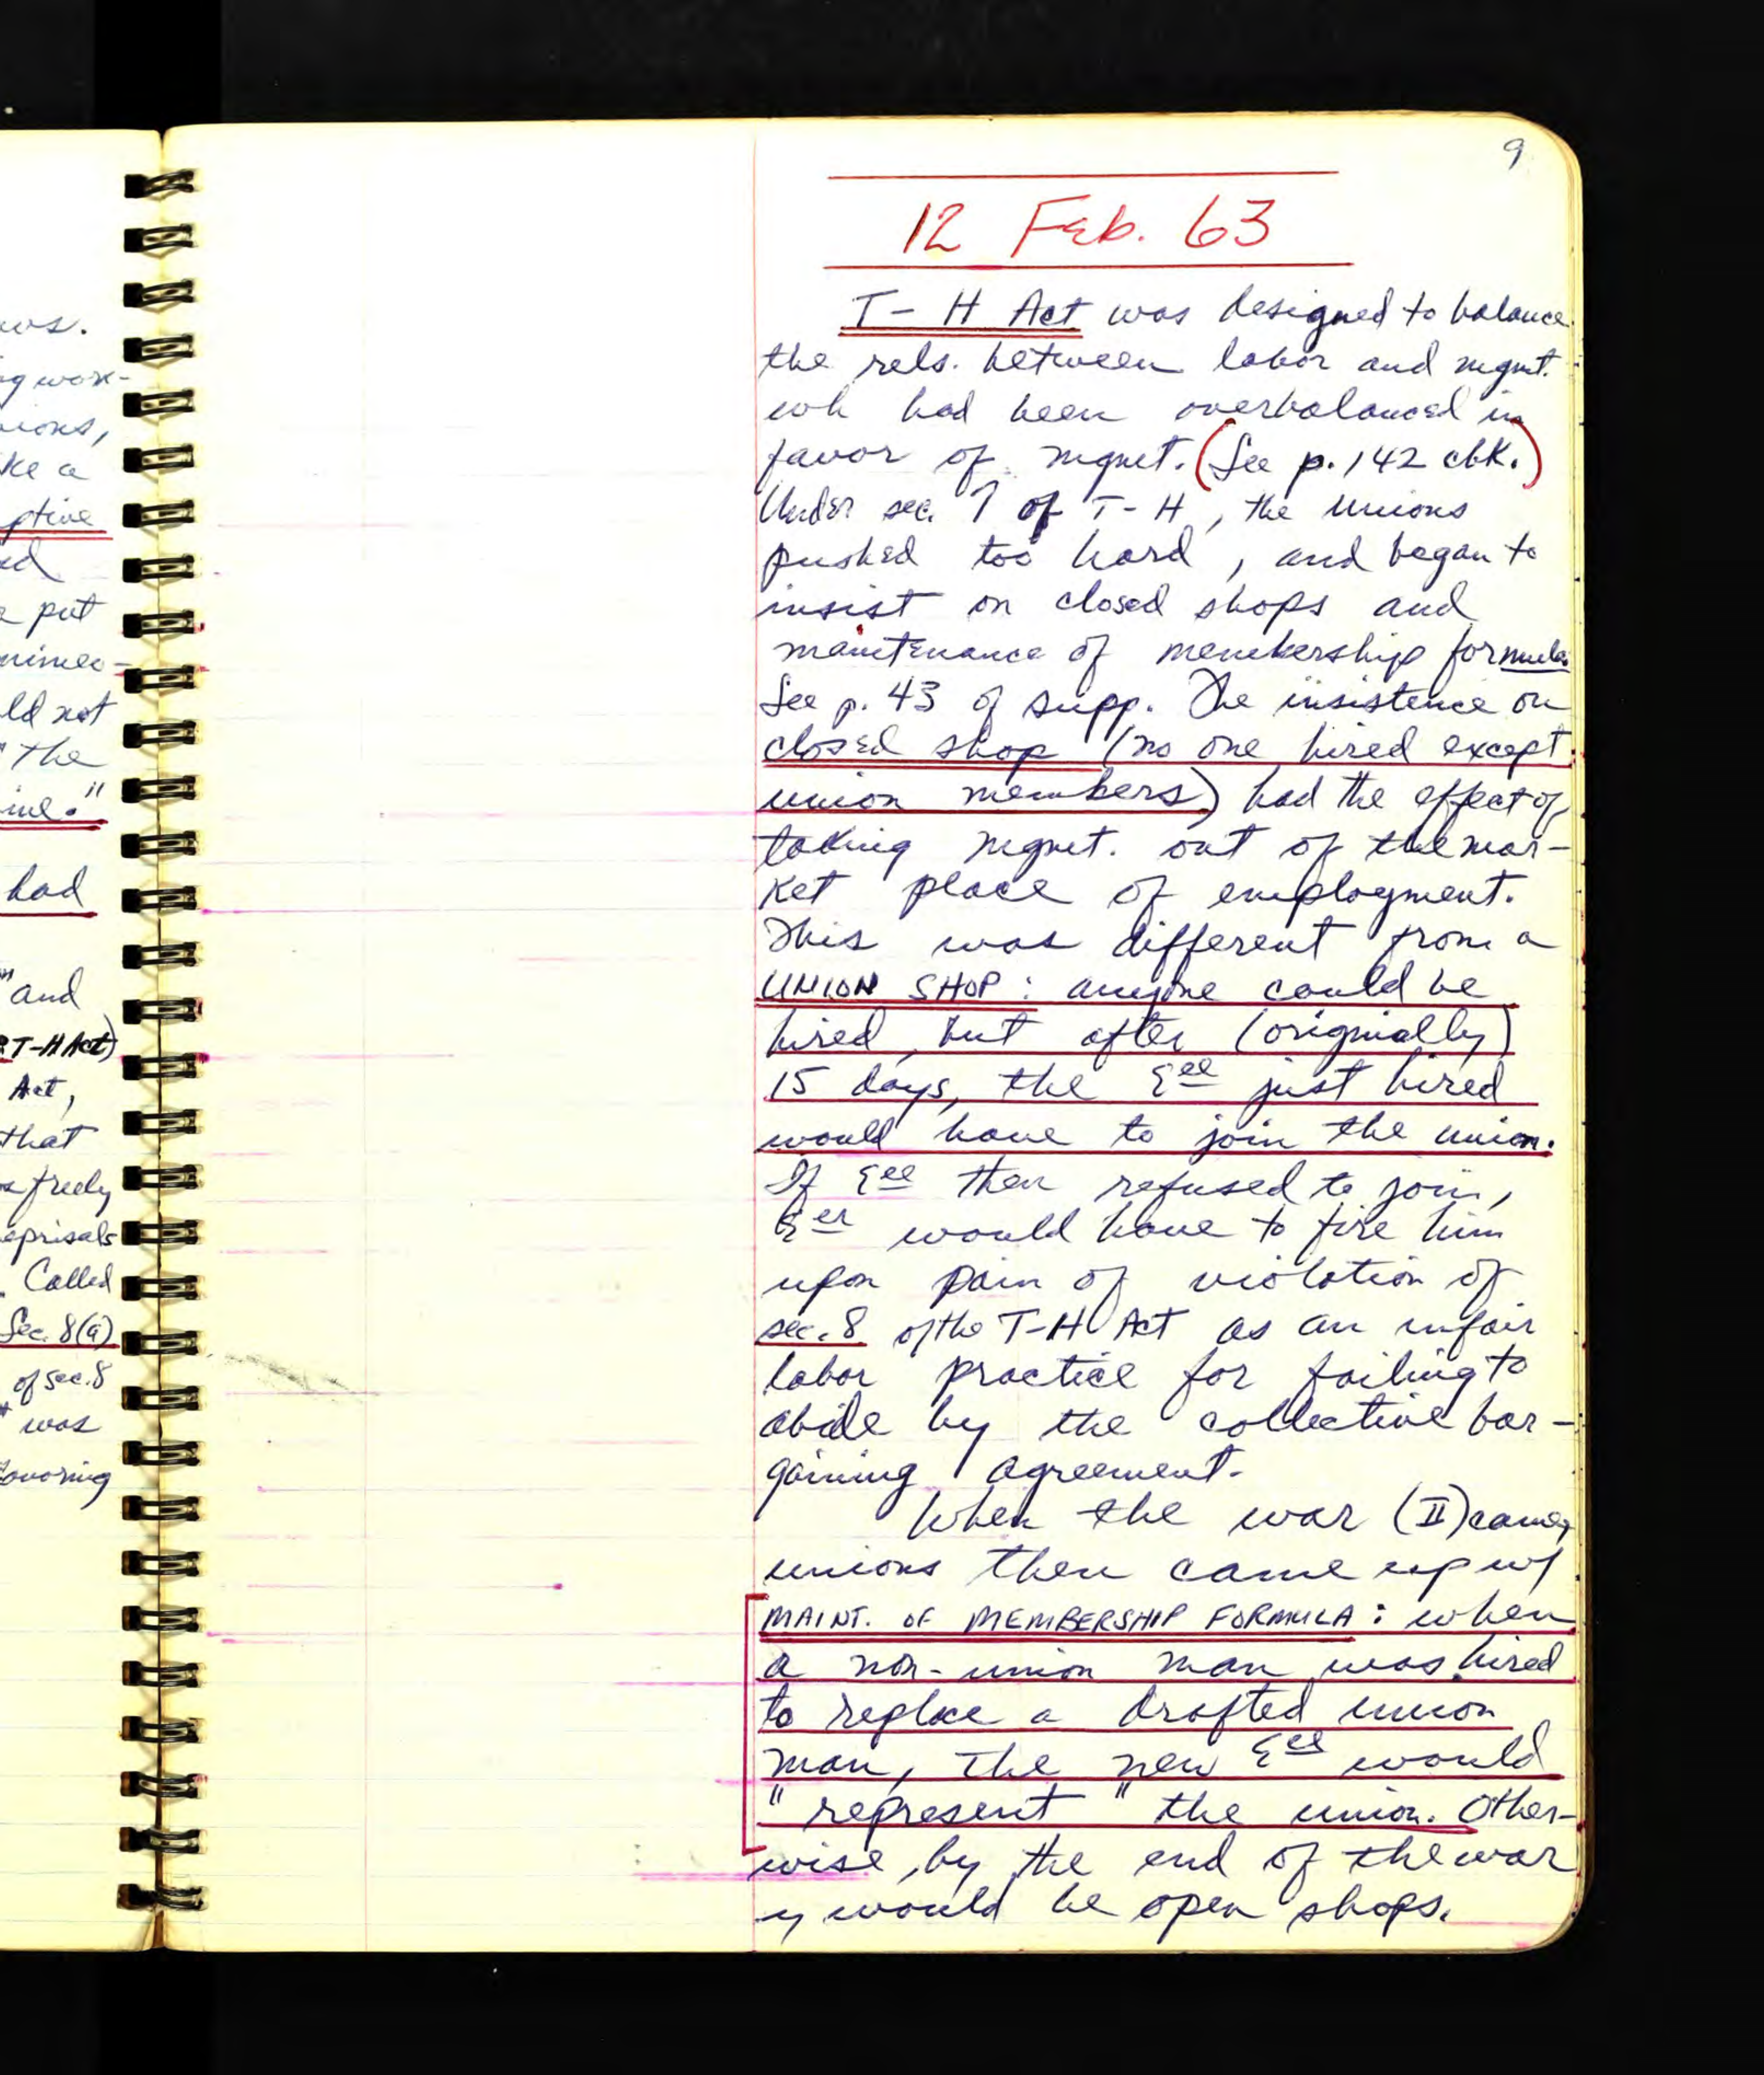 ws.
g work-
nions,
ke a
ptive
ed
e put
nimeo-
ld not
"the
ine."
had
" and
T-H Act)
Act,
that
freely
eprisals
. Called
Sec. 8(a)
of sec. 8
was
avoring
9
12 Feb. 63
T-H Act was designed to balance
the rels. between labor and mgmt.
wh had been overbalanced in
favor of mgmt. (See p. 142 cbk.)
Under sec. 7 of T-H, the unions
pushed too hard, and began to
insist on closed shops and
maintenance of membership formula.
See p. 43 of supp. The insistence on
closed shop (no one hired except
union members) had the effect of
taking mgmt. out of the mar-
ket place of employment.
This was different from a
UNION SHOP: anyone could be
hired, but after (originally)
15 days, the Eee just hired
would have to join the union.
If Eee then refused to join,
Eer would have to fire him
upon pain of violation of
sec. 8 of the T-H Act as an unfair
labor practice for failing to
abide by the collective bar-
gaining agreement.
When the war (II) came,
unions then came up w/
MAINT. OF MEMBERSHIP FORMULA: when
a non-union man was hired
to replace a drafted union
man, the new Eee would
"represent" the union. Other-
wise, by the end of the war
would be open shops.